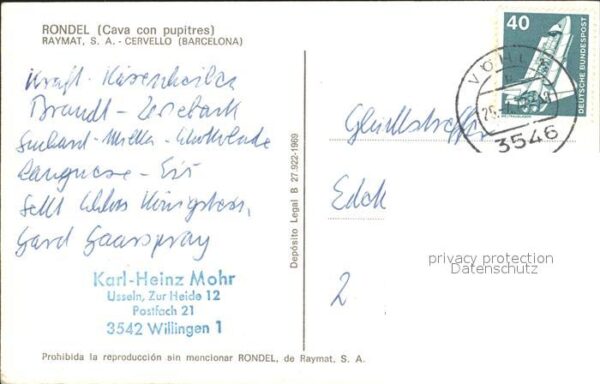 RONDEL (Cava con pupitres)
RAYMAT, S. A. - CERVELLO (BARCELONA)
Kraft - Käsescheiben
Brandt - Zwieback
Suchard - Milka - Schokolade
Langnese - Eis
Sekt Schloss Königstein,
Gard Haarspray
Karl-Heinz Mohr
Usseln, Zur Heide 12
Postfach 21
3542 Willingen 1
Prohibida la reproducción sin mencionar RONDEL, de Raymat, S. A.
Depósito Legal B 27.922-1969
40
DEUTSCHE BUNDESPOST
VÖHL
3546
Glückstreffer
Edek
2
privacy protection
Datenschutz